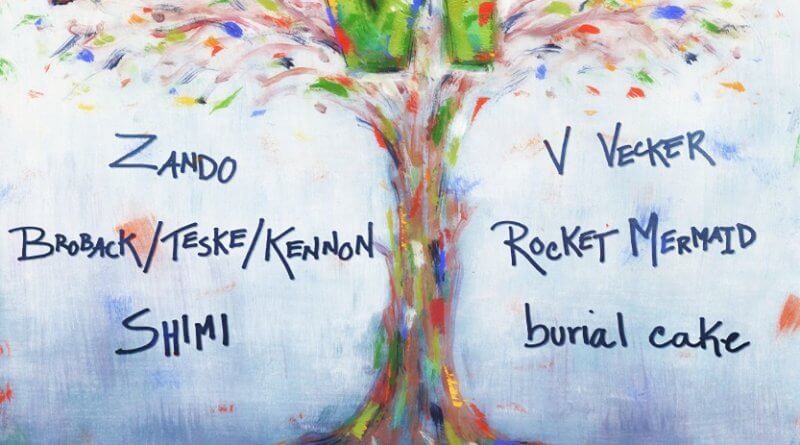 ZANDO
BROBACK/TESKE/KENNON
SHIMI
V VECKER
ROCKET MERMAID
burial cake